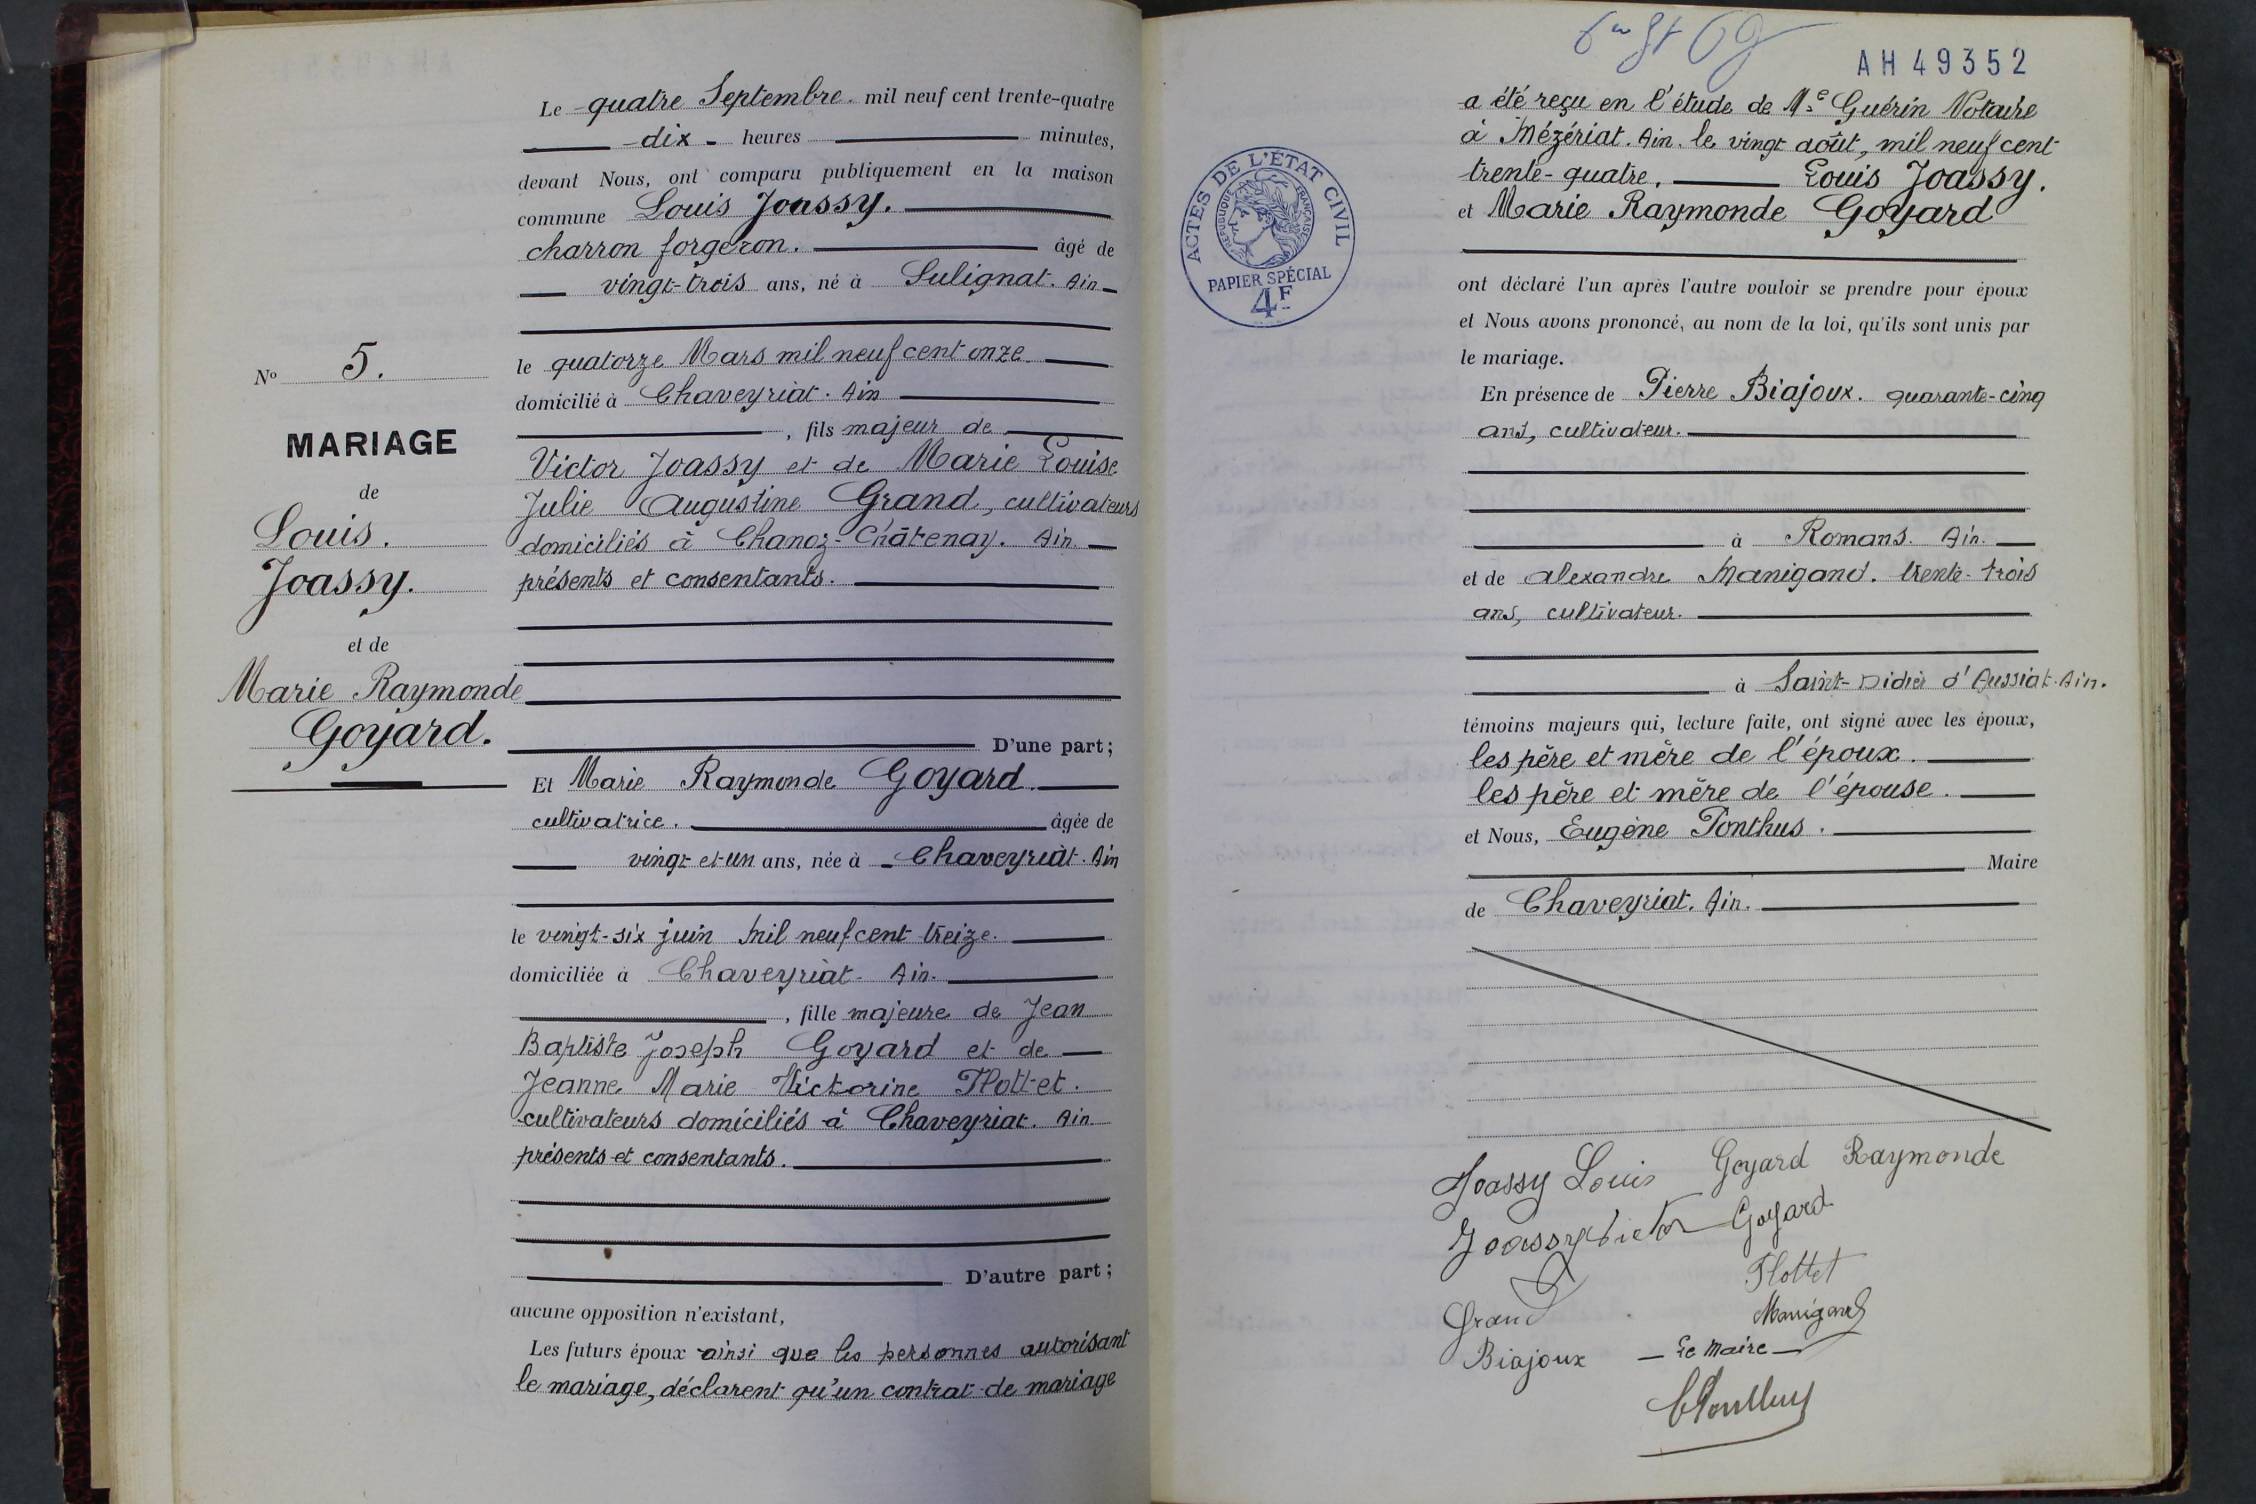 Le quatre Septembre. mil neuf cent trente-quatre
dix heures minutes,
devant Nous, ont comparu publiquement en la maison
commune Louis Joassy.
charron forgeron. âgé de
vingt-trois ans, né à Sulignat. Ain
le quatorze Mars mil neuf cent onze
domicilié à Chaveyriat. Ain
, fils majeur de
Victor Joassy et de Marie Louise
Julie Augustine Grand, cultivateurs
domiciliés à Chanoz-Châtenay. Ain.
présents et consentants.
D'une part;
Nº 5.
MARIAGE
de
Louis.
Joassy.
et de
Marie Raymonde
Goyard.
Et Marie Raymonde Goyard.
cultivatrice. âgée de
vingt et un ans, née à Chaveyriat. Ain
le vingt-six juin mil neuf cent treize.
domiciliée à Chaveyriat- Ain.
, fille majeure de Jean
Baptiste Joseph Goyard et de
Jeanne Marie Victorine Flottet.
cultivateurs domiciliés à Chaveyriat. Ain.
présents et consentants.
D'autre part;
aucune opposition n'existant,
Les futurs époux ainsi que les personnes autorisant
le mariage, déclarent qu'un contrat de mariage
AH 49352
ACTES DE L'ÉTAT CIVIL
RÉPUBLIQUE FRANÇAISE
PAPIER SPÉCIAL
4F
a été reçu en l'étude de Me Guérin Notaire
à Mézériat. Ain. le vingt août, mil neuf cent
trente-quatre. Louis Joassy.
et Marie Raymonde Goyard
ont déclaré l'un après l'autre vouloir se prendre pour époux
et Nous avons prononcé, au nom de la loi, qu'ils sont unis par
le mariage.
En présence de Pierre Biajoux. quarante-cinq
ans, cultivateur.
à Romans. Ain.
et de Alexandre Manigand. trente-trois
ans, cultivateur.
à Saint-Didier d'Aussiat. Ain.
témoins majeurs qui, lecture faite, ont signé avec les époux,
les père et mère de l'époux.
les père et mère de l'épouse.
et Nous, Eugène Ponthus.
Maire
de Chaveyriat. Ain.
Joassy Louis Goyard Raymonde
Joassy Victor Goyard
Flottet
Grand Manigand
Biajoux Le Maire